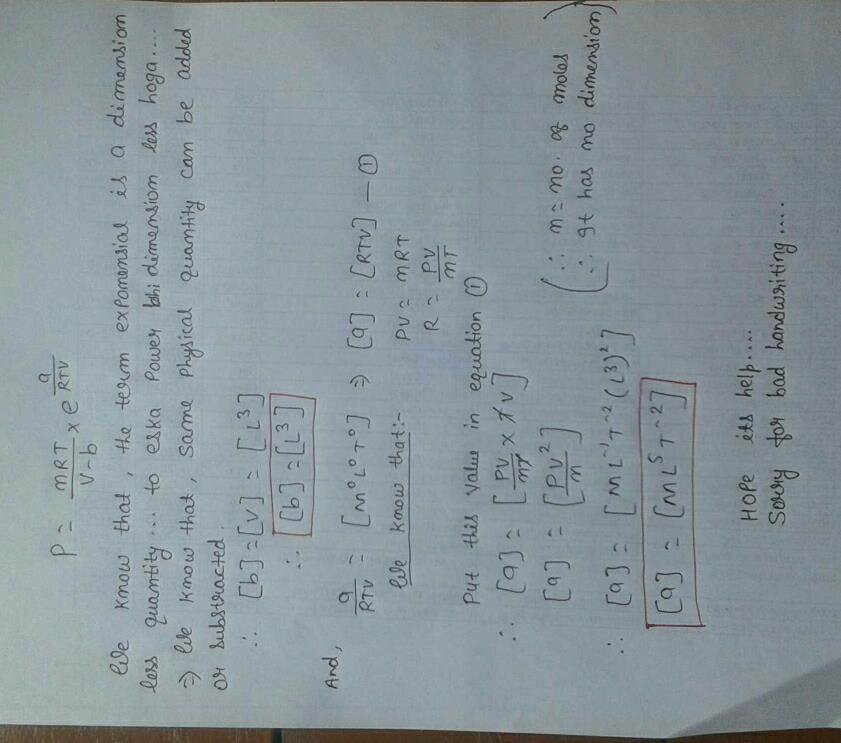 P = nRT/V-b × e^a/RTV
We know that, the term exponensial is a dimension
less quantity... to eska Power bhi dimension less hoga....
⇒ We know that, same Physical quantity can be added
or substracted.
∴ [b] = [V] = [L³]
∴ [b] = [L³]
And,
a/RTV = [M⁰L⁰T⁰] ⇒ [a] = [RTV] — ①
We know that:- PV = nRT
R = PV/nT
Put this value in equation ①
∴ [a] = [PV/nT × T V]
[a] = [PV²/n] (∵ n = no. of moles
∴ It has no dimension)
∴ [a] = [M L⁻¹ T⁻² (L³)²]
[a] = [M L⁵ T⁻²]
HOPE its help....
Sorry for bad handwriting....